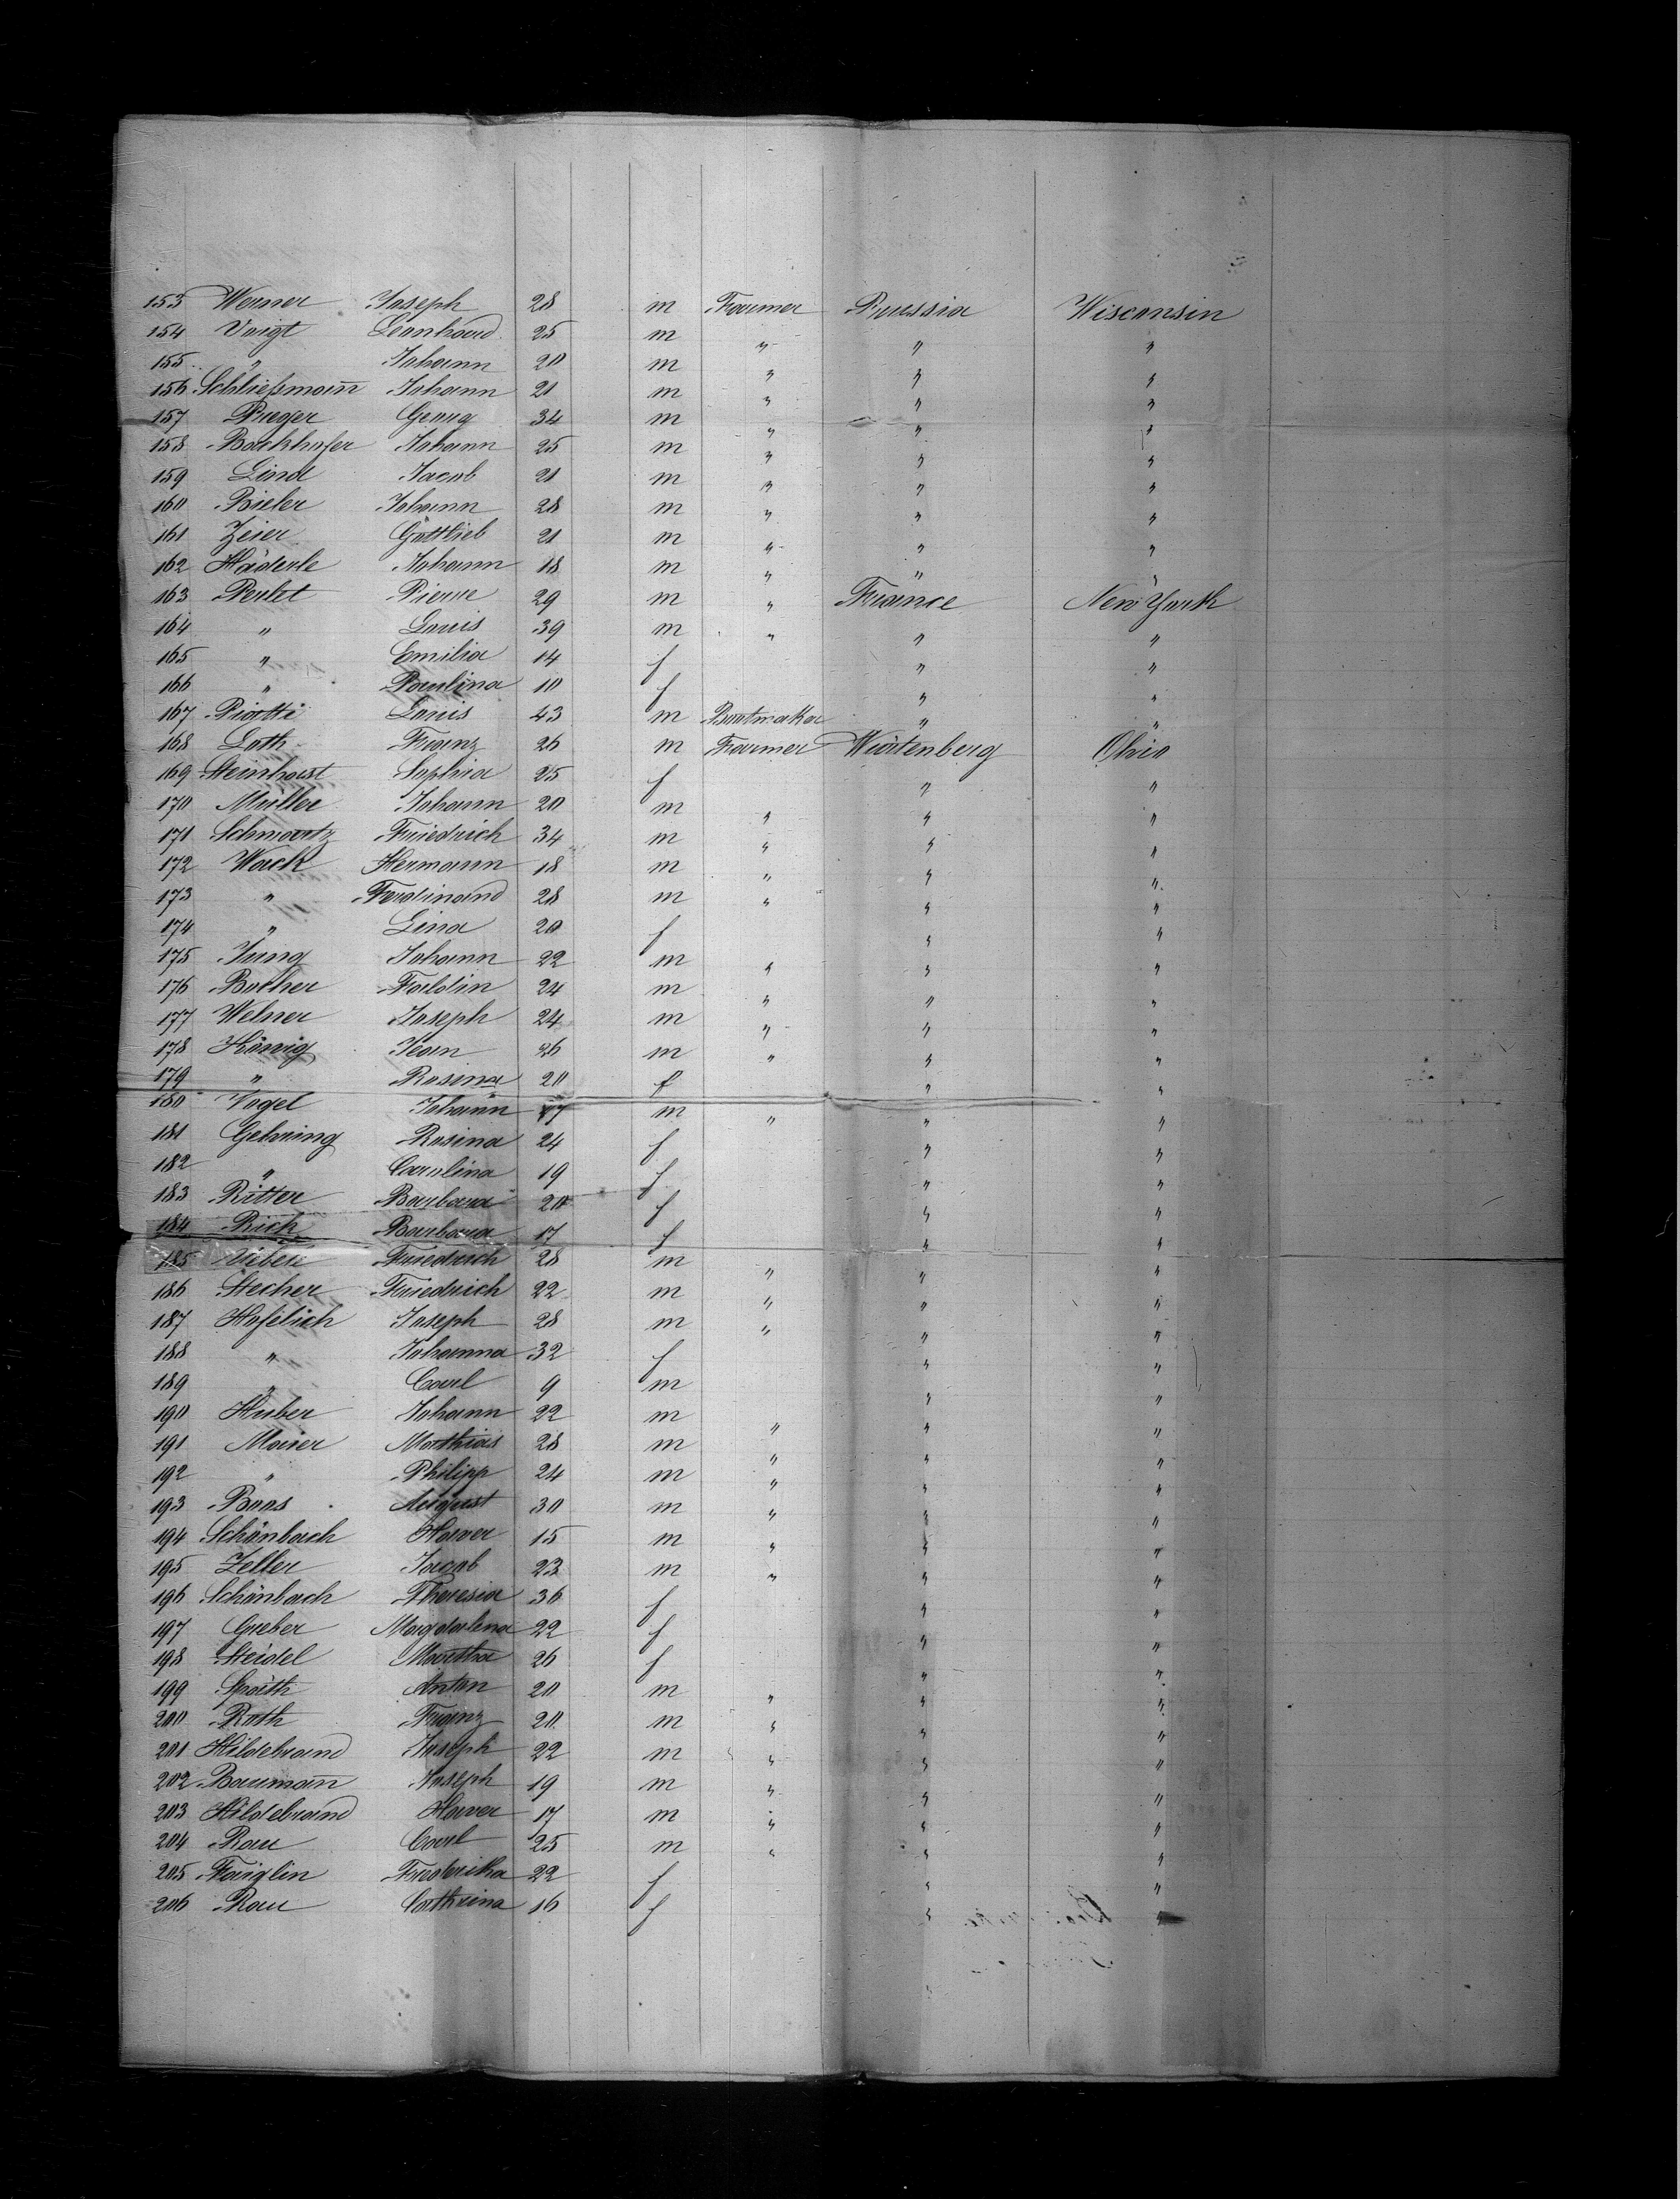 153 Werner Joseph 28 m Farmer Prussia Wisconsin
154 Voigt Leonhard 25 m " " "
155 " Johann 20 m " " "
156 Schließmañ Johann 21 m " " "
157 Prieger Georg 34 m " " "
158 Backhofer Johann 25 m " " "
159 Lind Jacob 21 m " " "
160 Bieler Johann 28 m " " "
161 Zeier Gottlieb 21 m " " "
162 Häderle Johann 18 m " " "
163 Perlet Pierre 29 m " France New York
164 " Louis 39 m " " "
165 " Emilia 14 f " "
166 " Paulina 10 f " "
167 Piatti Louis 43 m Bootmaker " "
168 Loth Franz 26 m Farmer Würtenberg Ohio
169 Steinhorst Sophia 25 f " "
170 Müller Johann 20 m " " "
171 Schwartz Friedrich 34 m " " "
172 Wack Hermann 18 m " " "
173 " Ferdinand 28 m " " "
174 " Lina 20 f " "
175 Jung Johann 22 m " " "
176 Bucher Faldin 24 m " " "
177 Welner Joseph 24 m " " "
178 König Jean 26 m " " "
179 " Rosina 20 f " "
180 Vogel Johann 17 m " " "
181 Gehring Rosina 24 f " "
182 " Carolina 19 f " "
183 Ritter Barbara 20 f " "
184 Rich Barbara 17 f " "
185 Friedrich 28 m " " "
186 Stecher Friedrich 22 m " " "
187 Hofelich Joseph 28 m " " "
188 " Johanna 32 f " "
189 " Carl 9 m " "
190 Huber Johann 22 m " " "
191 Maier Mathias 28 m " " "
192 " Philipp 24 m " " "
193 Boos August 30 m " " "
194 Schönbach Xaver 15 m " " "
195 Zeller Jacob 23 m " " "
196 Schönbach Theresia 36 f " "
197 Greber Magdalena 22 f " "
198 Steidel Martha 26 f " "
199 Späth Anton 20 m " " "
200 Roth Franz 20 m " " "
201 Hildebrand Joseph 22 m " " "
202 Baumañ Joseph 19 m " " "
203 Hildebrand Xaver 17 m " " "
204 Rau Carl 25 m " " "
205 Faiglin Frederika 22 f " "
206 Rau Cathrina 16 f " "